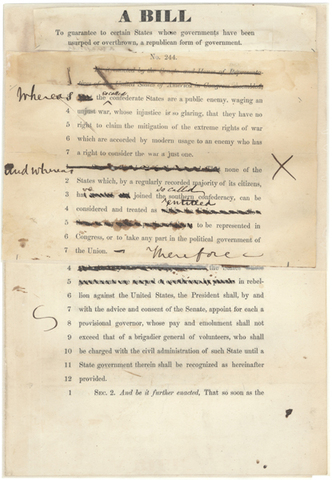 A BILL
To guarantee to certain States whose governments have been
usurped or overthrown, a republican form of government.
No. 244.
Whereas
so called
3 the confederate States are a public enemy, waging an
4 unjust war, whose injustice is so glaring, that they have no
5 right to claim the mitigation of the extreme rights of war
6 which are accorded by modern usage to an enemy who has
7 a right to consider the war a just one.
And whereas none of the
2 States which, by a regularly recorded majority of its citizens,
so called
3 joined the southern confederacy, can be
entitled
4 considered and treated as
5 to be represented in
6 Congress, or to take any part in the political government of
7 the Union. — Therefore
X
4 the
5 in rebel-
6 lion against the United States, the President shall, by and
7 with the advice and consent of the Senate, appoint for each a
8 provisional governor, whose pay and emolument shall not
9 exceed that of a brigadier general of volunteers, who shall
10 be charged with the civil administration of such State until a
11 State government therein shall be recognized as hereinafter
12 provided.
1 SEC. 2. And be it further enacted, That so soon as the